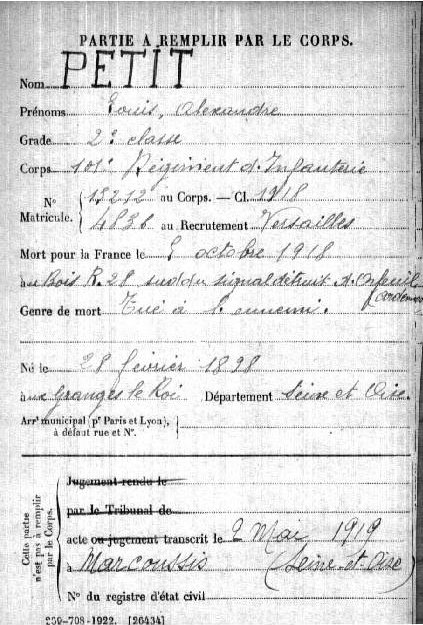 PARTIE À REMPLIR PAR LE CORPS.
Nom PETIT
Prénoms Louis, Alexandre
Grade 2e classe
Corps 101e Régiment d'Infanterie
N° Matricule. 13212 au Corps. — Cl. 1918
4838 au Recrutement Versailles
Mort pour la France le octobre 1918
au Bois R. 28 sud du signal détruit d'Orfeuil
Ardennes
Genre de mort Tué à l'ennemi.
Né le 28 février 1898
aux Granges le Roi Département Seine et Oise.
Arrt municipal (pr Paris et Lyon),
à défaut rue et N°.
Cette partie n'est pas à remplir par le Corps.
Jugement rendu le
par le Tribunal de
acte ou jugement transcrit le 2 Mai 1919
à Marcoussis (Seine-et-Oise)
N° du registre d'état civil
239-708-1922. [26434]